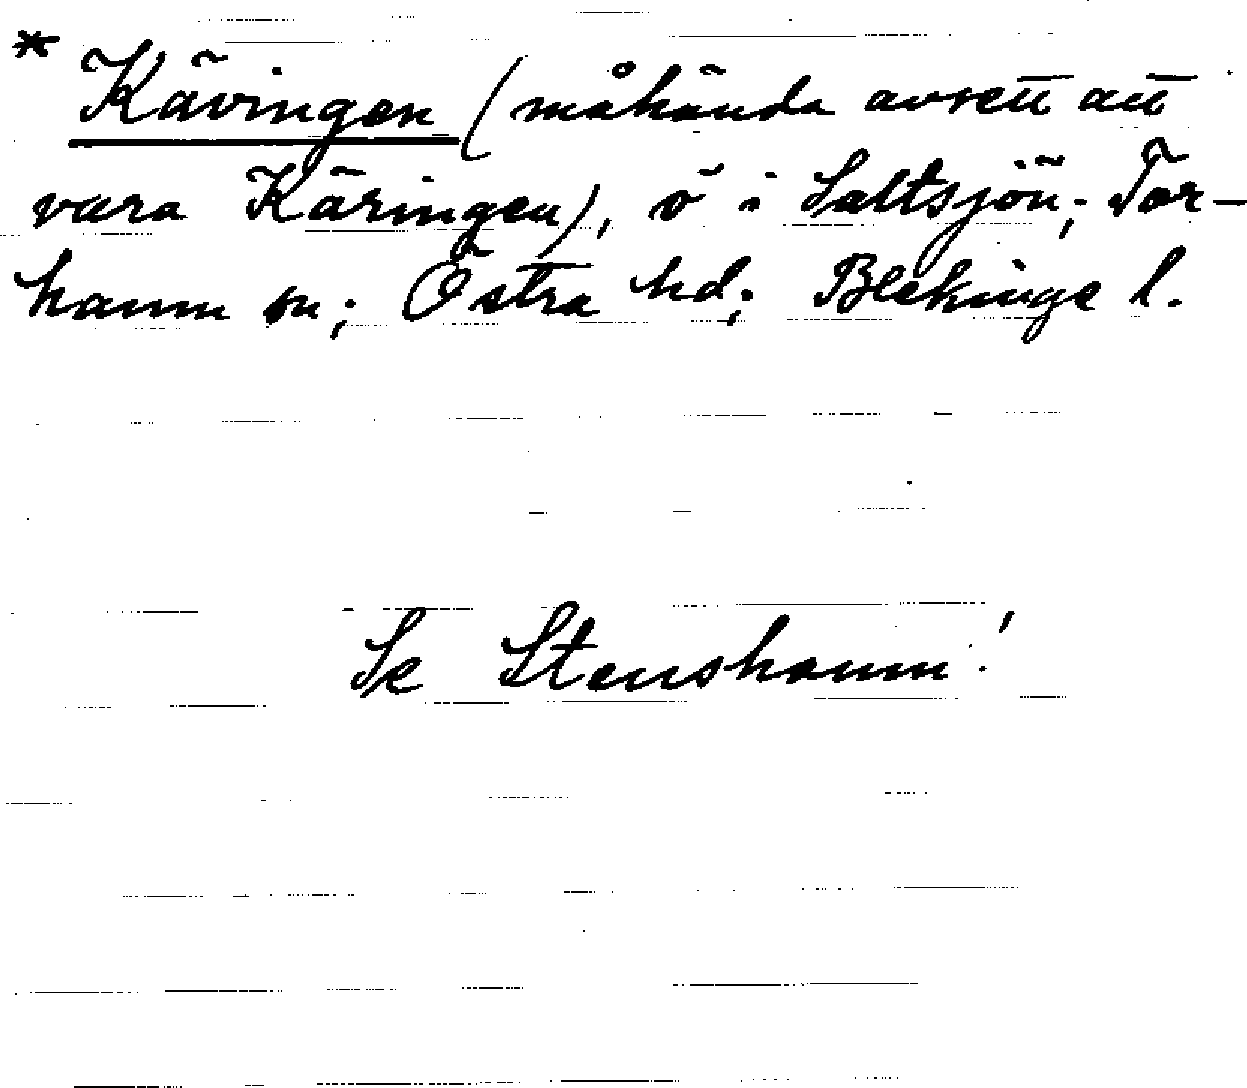 * Kävingen (måhända avsett att
vara Käringen), ö i Saltsjön; Tor-
hamn sn; Östra hd; Blekinge l.
Se Stenshamn!